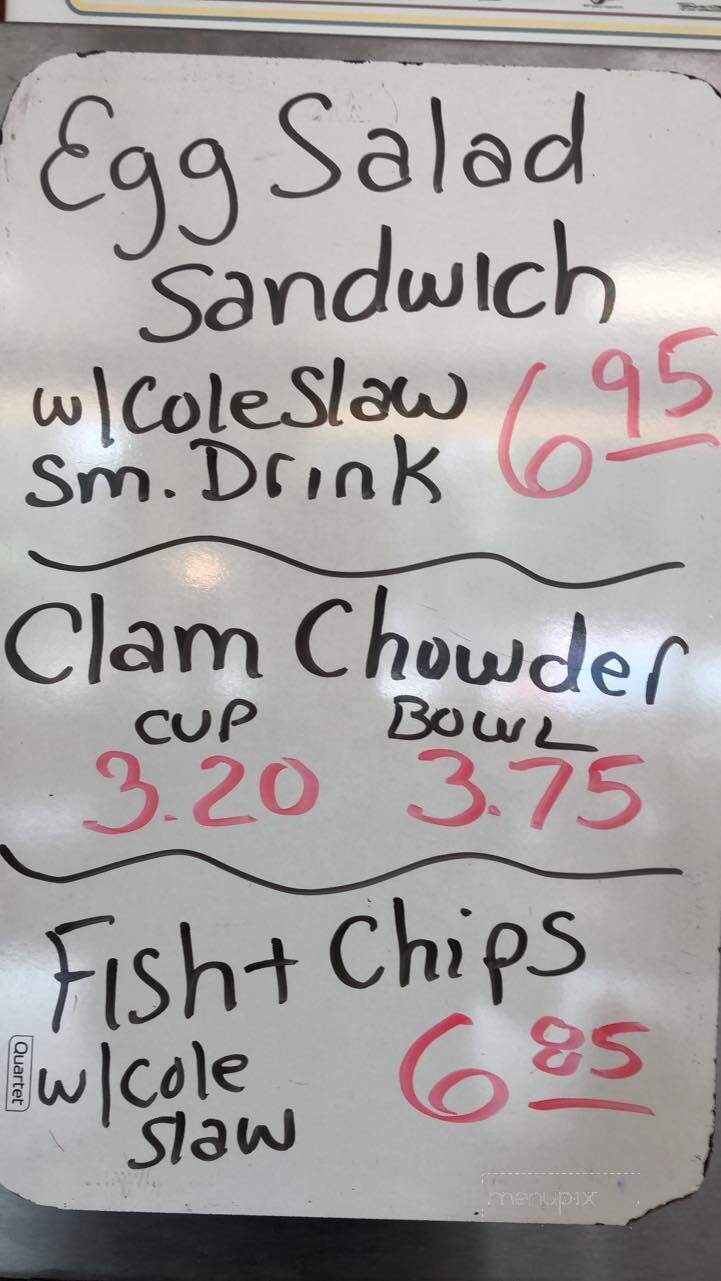 Egg Salad
Sandwich
w/Cole Slaw 6 95
sm. Drink
Clam Chowder
CUP BOWL
3.20 3.75
Fish + Chips
w/cole 6 85
slaw
Quartet
menupix